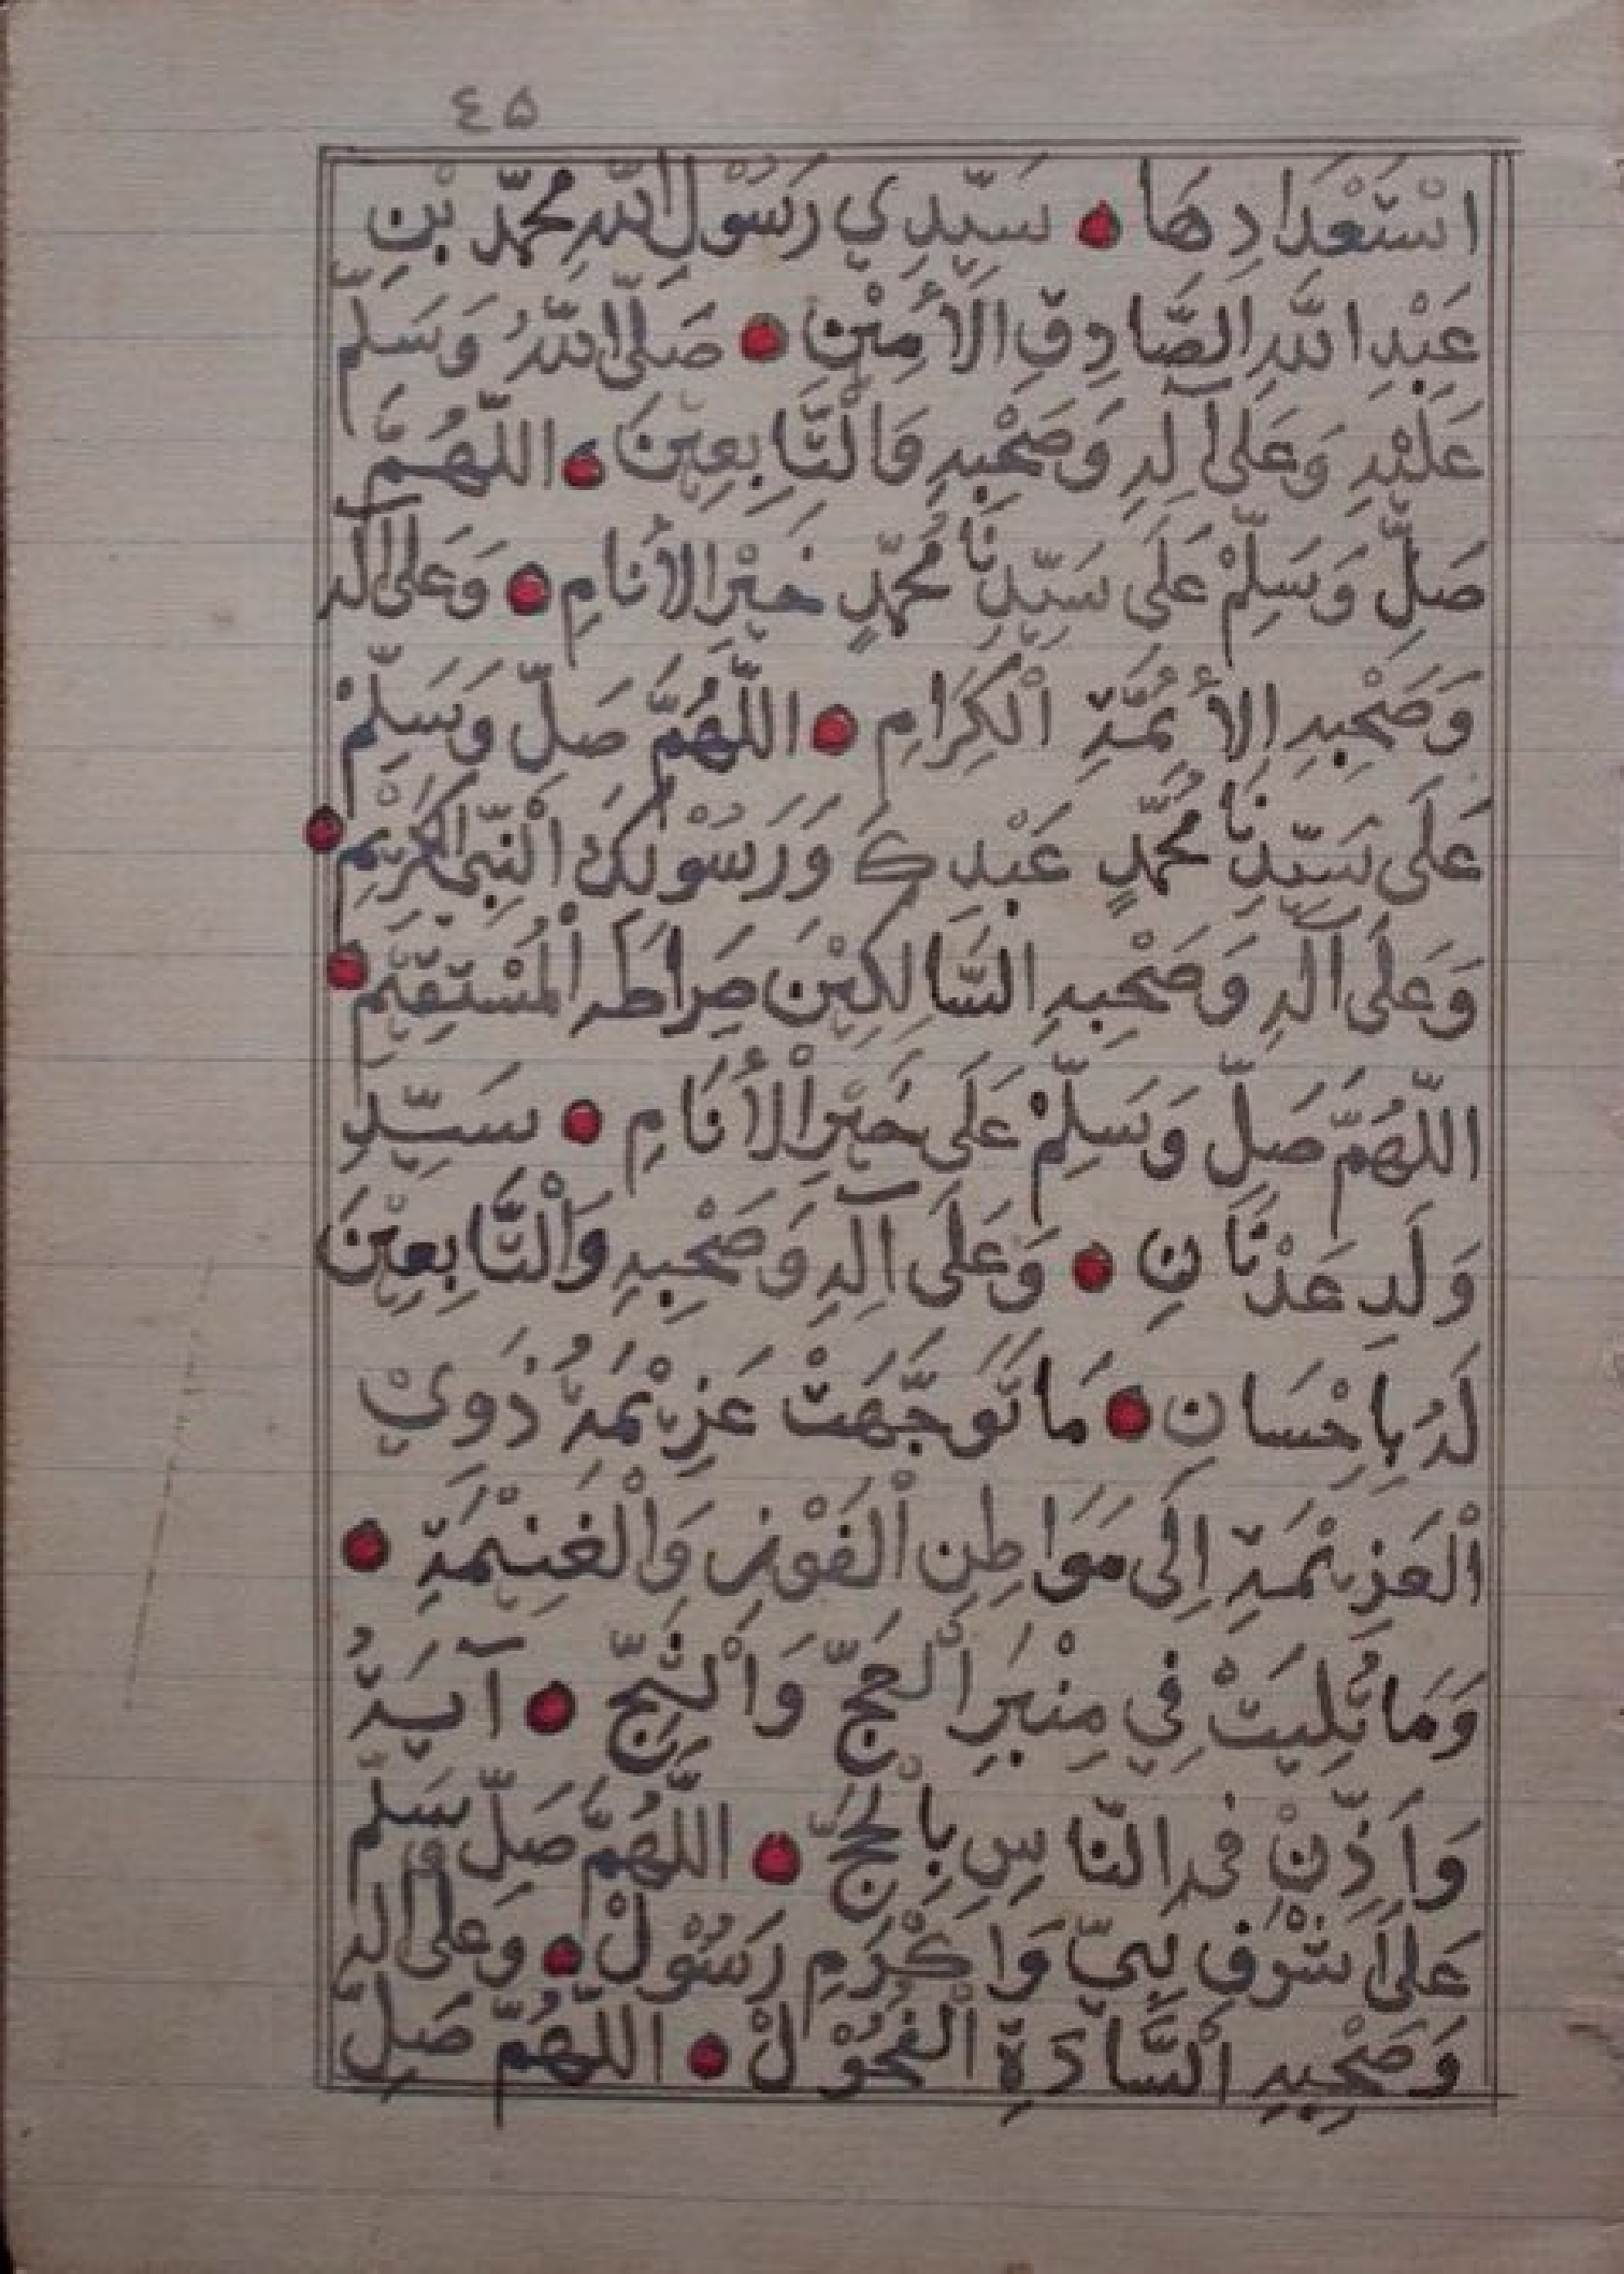 ٤٥
اسْتَعْدَادِهَا • سَيِّدِي رَسُوْلِ اللّٰهِ مُحَمَّدِ بْنِ
عَبْدِ اللّٰهِ الصَّادِقِ الْأَمِيْنِ • صَلَّى اللّٰهُ وَسَلَّمَ
عَلَيْهِ وَعَلَى آلِهِ وَصَحْبِهِ وَالتَّابِعِيْنَ • اللَّهُمَّ
صَلِّ وَسَلِّمْ عَلَى سَيِّدِنَا مُحَمَّدٍ خَيْرِ الْأَنَامِ • وَعَلَى آلِهِ
وَصَحْبِهِ الْأَئِمَّةِ الْكِرَامِ • اللَّهُمَّ صَلِّ وَسَلِّمْ
عَلَى سَيِّدِنَا مُحَمَّدٍ عَبْدِكَ وَرَسُوْلِكَ النَّبِيِّ الْكَرِيْمِ •
وَعَلَى آلِهِ وَصَحْبِهِ السَّالِكِيْنَ صِرَاطَهُ الْمُسْتَقِيْمَ •
اللَّهُمَّ صَلِّ وَسَلِّمْ عَلَى خَيْرِ الْأَنَامِ • سَيِّدِ
وَلَدِ عَدْنَانِ • وَعَلَى آلِهِ وَصَحْبِهِ وَالتَّابِعِيْنَ
لَهُ بِاِحْسَانِ • مَا تَوَجَّهَتْ عَزِيْمَةُ ذَوِيْ
الْعَزِيْمَةِ اِلَى مَوَاطِنِ الْفَوْزِ وَالْغَنِيْمَةِ •
وَمَا تُلِيَتْ فِي مِنْبَرِ الْعَجِّ وَالثَّجِّ • آيَةُ
وَاَذِّنْ فِي النَّاسِ بِالْحَجِّ • اللَّهُمَّ صَلِّ وَسَلِّمْ
عَلَى اَشْرَفِ نَبِيٍّ وَاَكْرَمِ رَسُوْلْ • وَعَلَى آلِهِ
وَصَحْبِهِ السَّادَةِ الْفُحُوْلْ • اللَّهُمَّ صَلِّ